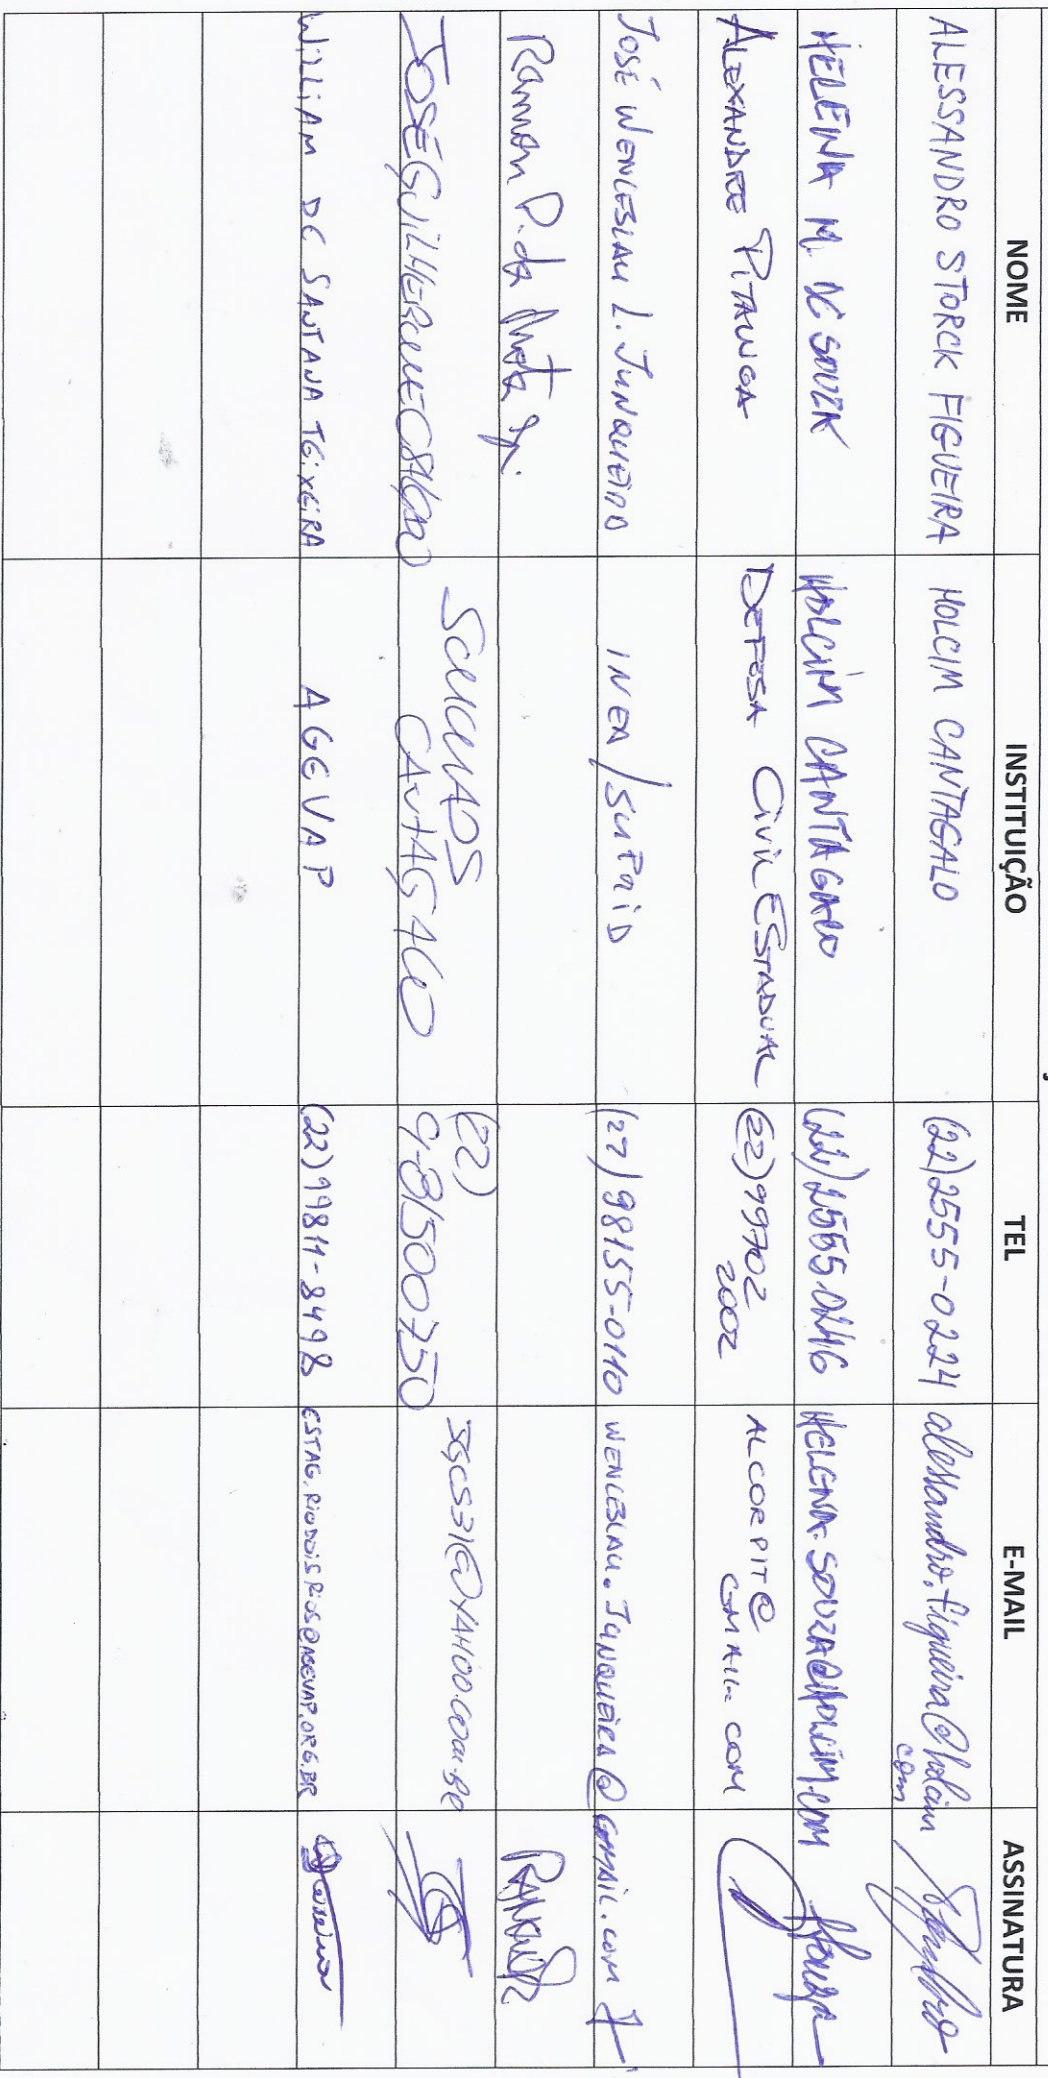 NOME INSTITUIÇÃO TEL E-MAIL ASSINATURA
ALESSANDRO STORCK FIGUEIRA HOLCIM CANTAGALO (22)2555-0224 alessandro.figueira@holcim
com
HELENA M. DE SOUZA HOLCIM CANTAGALO (22)25550246 HELENA.SOUZA@HOLCIM.COM
ALEXANDRE PITANGA DEFESA CIVIL ESTADUAL (22)99702 ALCORPIT@
2002 GMAIL.COM
JOSÉ WENCESLAU L. JUNQUEIRA INEA/SUPRID (22)98155-0110 WENCESLAU.JUNQUEIRA@GMAIL.COM
Ramon P. da
JOSÉ GUILHERME (22) JGCS31@YAHOO.COM.BR
CANTAGALO 9-81500750
WILLIAM DE SANTANA TEIXEIRA AGEVAP (22)99811-8498 ESTAG.RIODOISRIOS@AGEVAP.ORG.BR